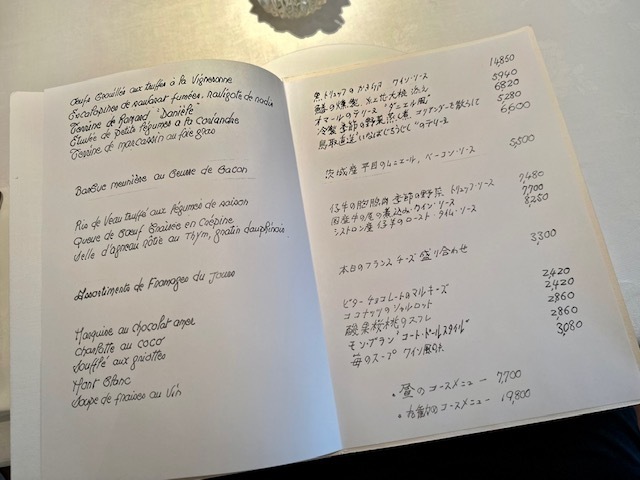 Oeufs Brouillés aux truffes à la Vigneronne
Escalopines de fumées, navigote de radis
Terrine de Canard "Danièle"
Étuvée de petits légumes à la Coriandre
Terrine de marcassin au foie gras
Barbue meunière au Beurre de Bacon
Ris de Veau truffé aux légumes de saison
Queue de Boeuf Braisée en Crépine
Selle d'agneau rôtie au Thym, gratin dauphinois
Assortiments de Fromages du Jour
Marquise au chocolat amer
Charlotte au coco
Soufflé aux griottes
Mont Blanc
Soupe de fraises au Vin
黒トリュフのかき卵 ワイン・ソース 14850
の燻製、 大桃 添え 5940
のテリーヌ "ダニエル風" 6820
冷製 季節の野菜蒸し煮 コリアンダーを散らして 5280
鳥取直送 "いなばじうじし"のテリーヌ 6,600
茨城産 平目のムニエール、ベーコン・ソース 5,500
仔牛の胸腺肉 季節の野菜 トリュフ・ソース 7,480
国産牛の尾の煮込み・ワイン・ソース 7700
シストロン産 仔羊のロースト・タイム・ソース 8250
本日のフランスチーズ 盛り合わせ 3,300
ビターチョコレートのマルキーズ 2,420
ココナッツのシャルロット 2,420
酸果桜桃のスフレ 2860
モン・ブラン "コート・ドールスタイル" 2860
苺のスープ ワイン風味 3,080
• 昼のコースメニュー ー 7,700
• のコースメニュー ー 19,800